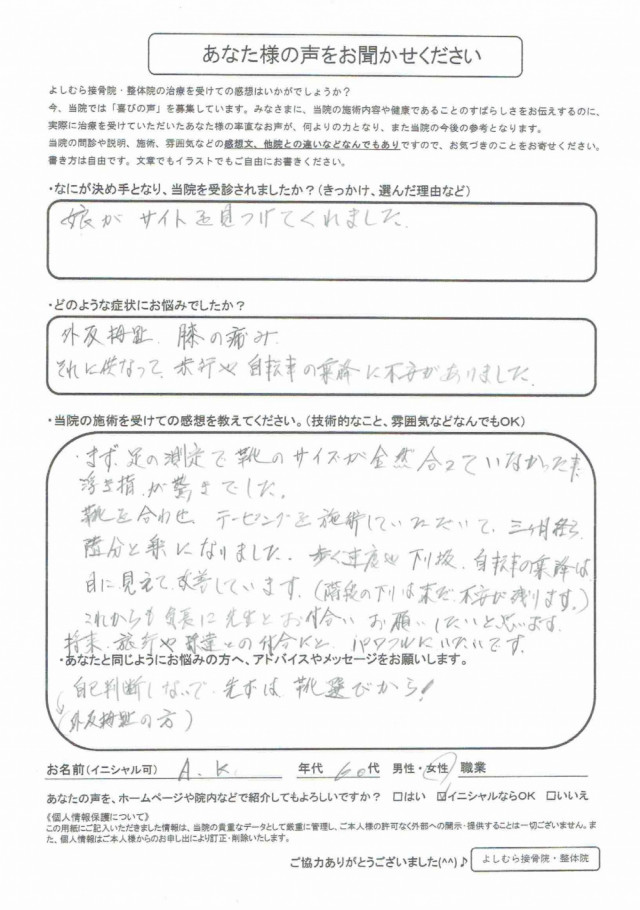 あなた様の声をお聞かせください
よしむら接骨院・整体院の治療を受けての感想はいかがでしょうか?
今、当院では「喜びの声」を募集しています。みなさまに、当院の施術内容や健康であることのすばらしさをお伝えするのに、
実際に治療を受けていただいたあなた様の率直なお声が、何よりの力となり、また当院の今後の参考となります。
当院の問診や説明、施術、雰囲気などの感想文、他院との違いなどなんでもありですので、お気づきのことをお寄せください。
書き方は自由です。文章でもイラストでもご自由にお書きください。
・なにが決め手となり、当院を受診されましたか?(きっかけ、選んだ理由など)
娘がサイトを見つけてくれました。
・どのような症状にお悩みでしたか?
外反拇趾、膝の痛み
それに伴なって、歩行や自転車の乗降に不安がありました。
・当院の施術を受けての感想を教えてください。(技術的なこと、雰囲気などなんでもOK)
・まず、足の測定で靴のサイズが全然合っていなかった
浮き指が驚きでした。
靴を合わせ、テーピングを施術していただいて、三ヶ月経ち
随分と楽になりました。歩く速度や下り坂、自転車の乗降は
目に見えて改善しています。(階段の下りは未だ不安が残ります。)
これからも気長に先生とお付合いお願いしたいと思います。
将来、旅行や友達との付合にと、パワフルにいたいです。
・あなたと同じようにお悩みの方へ、アドバイスやメッセージをお願いします。
自己判断しないで、先ずは靴選びから!
(外反拇趾の方)
お名前(イニシャル可) A.K. 年代 60代 男性・女性 職業
あなたの声を、ホームページや院内などで紹介してもよろしいですか? □はい ☑イニシャルならOK □いいえ
《個人情報保護について》
この用紙にご記入いただきました情報は、当院の貴重なデータとして厳重に管理し、ご本人様の許可なく外部への開示・提供することは一切ございません。ま
た、個人情報はご本人様からのお申し出により訂正・削除いたします。
ご協力ありがとうございました(^^)♪ よしむら接骨院・整体院